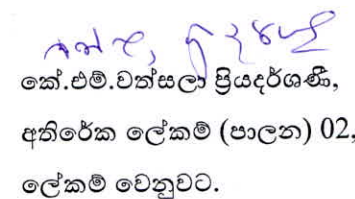 කේ.එම්.වත්සලා ප්‍රියදර්ශණී,
අතිරේක ලේකම් (පාලන) 02,
ලේකම් වෙනුවට.